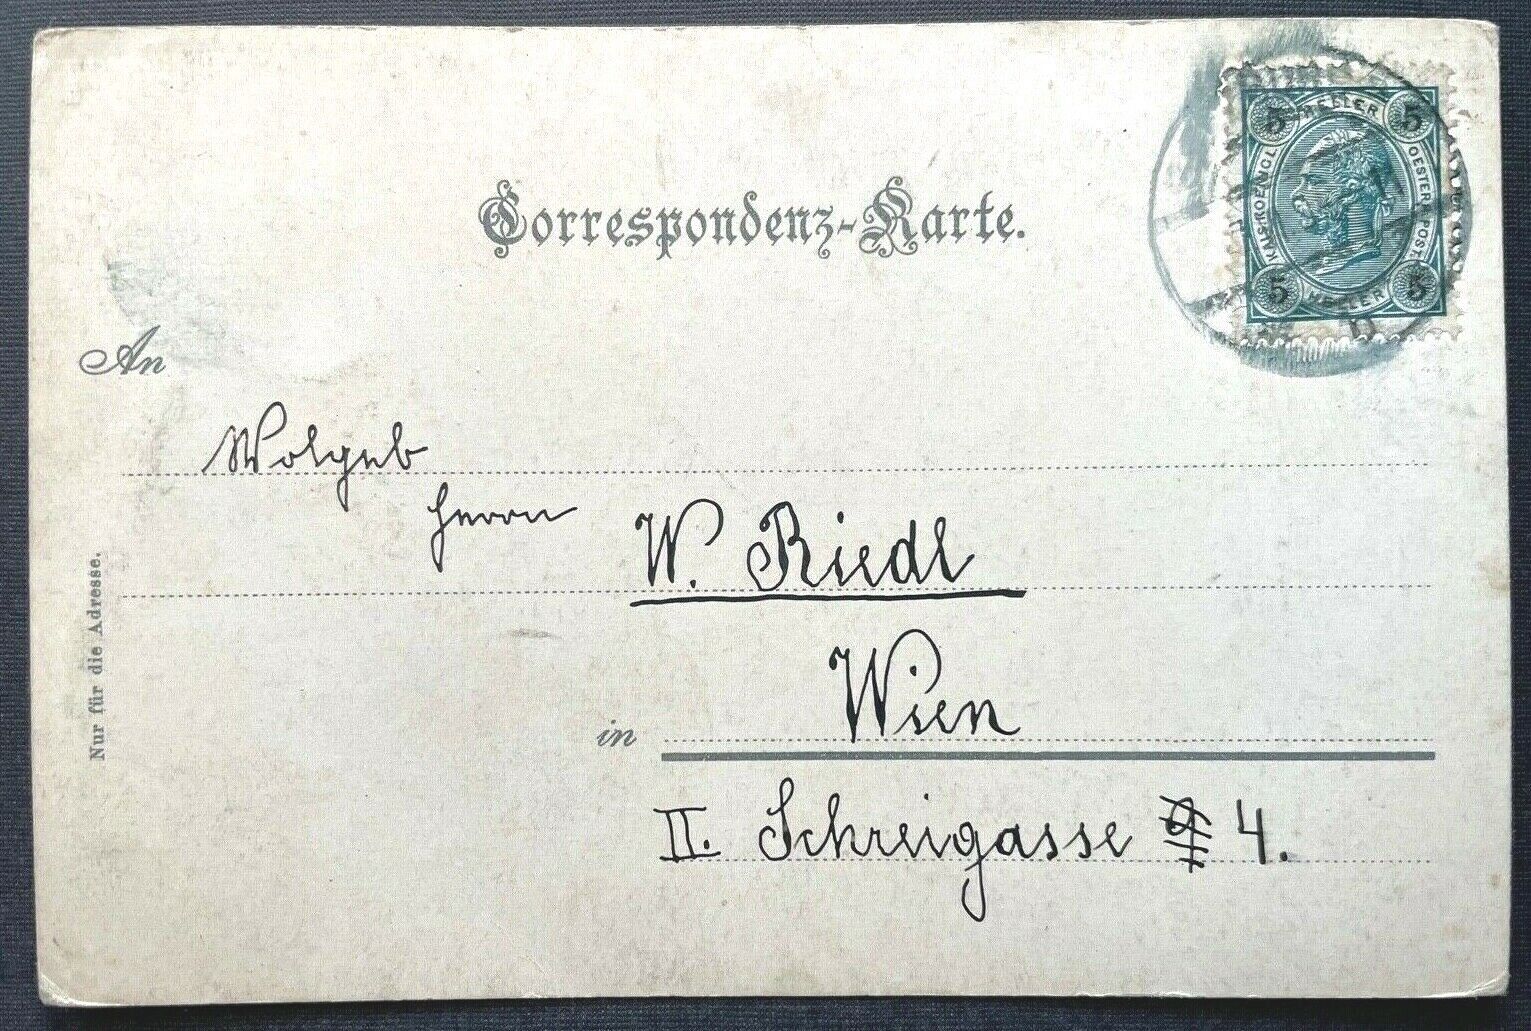 Correspondenz-Karte.
5 HELLER 5
KAIS. KOENIGL.
OESTERR. POST.
5 HELLER 5
An
Wolgeb
Herrn W. Riedl
in Wien
II. Schreigasse 4.
Nur für die Adresse.